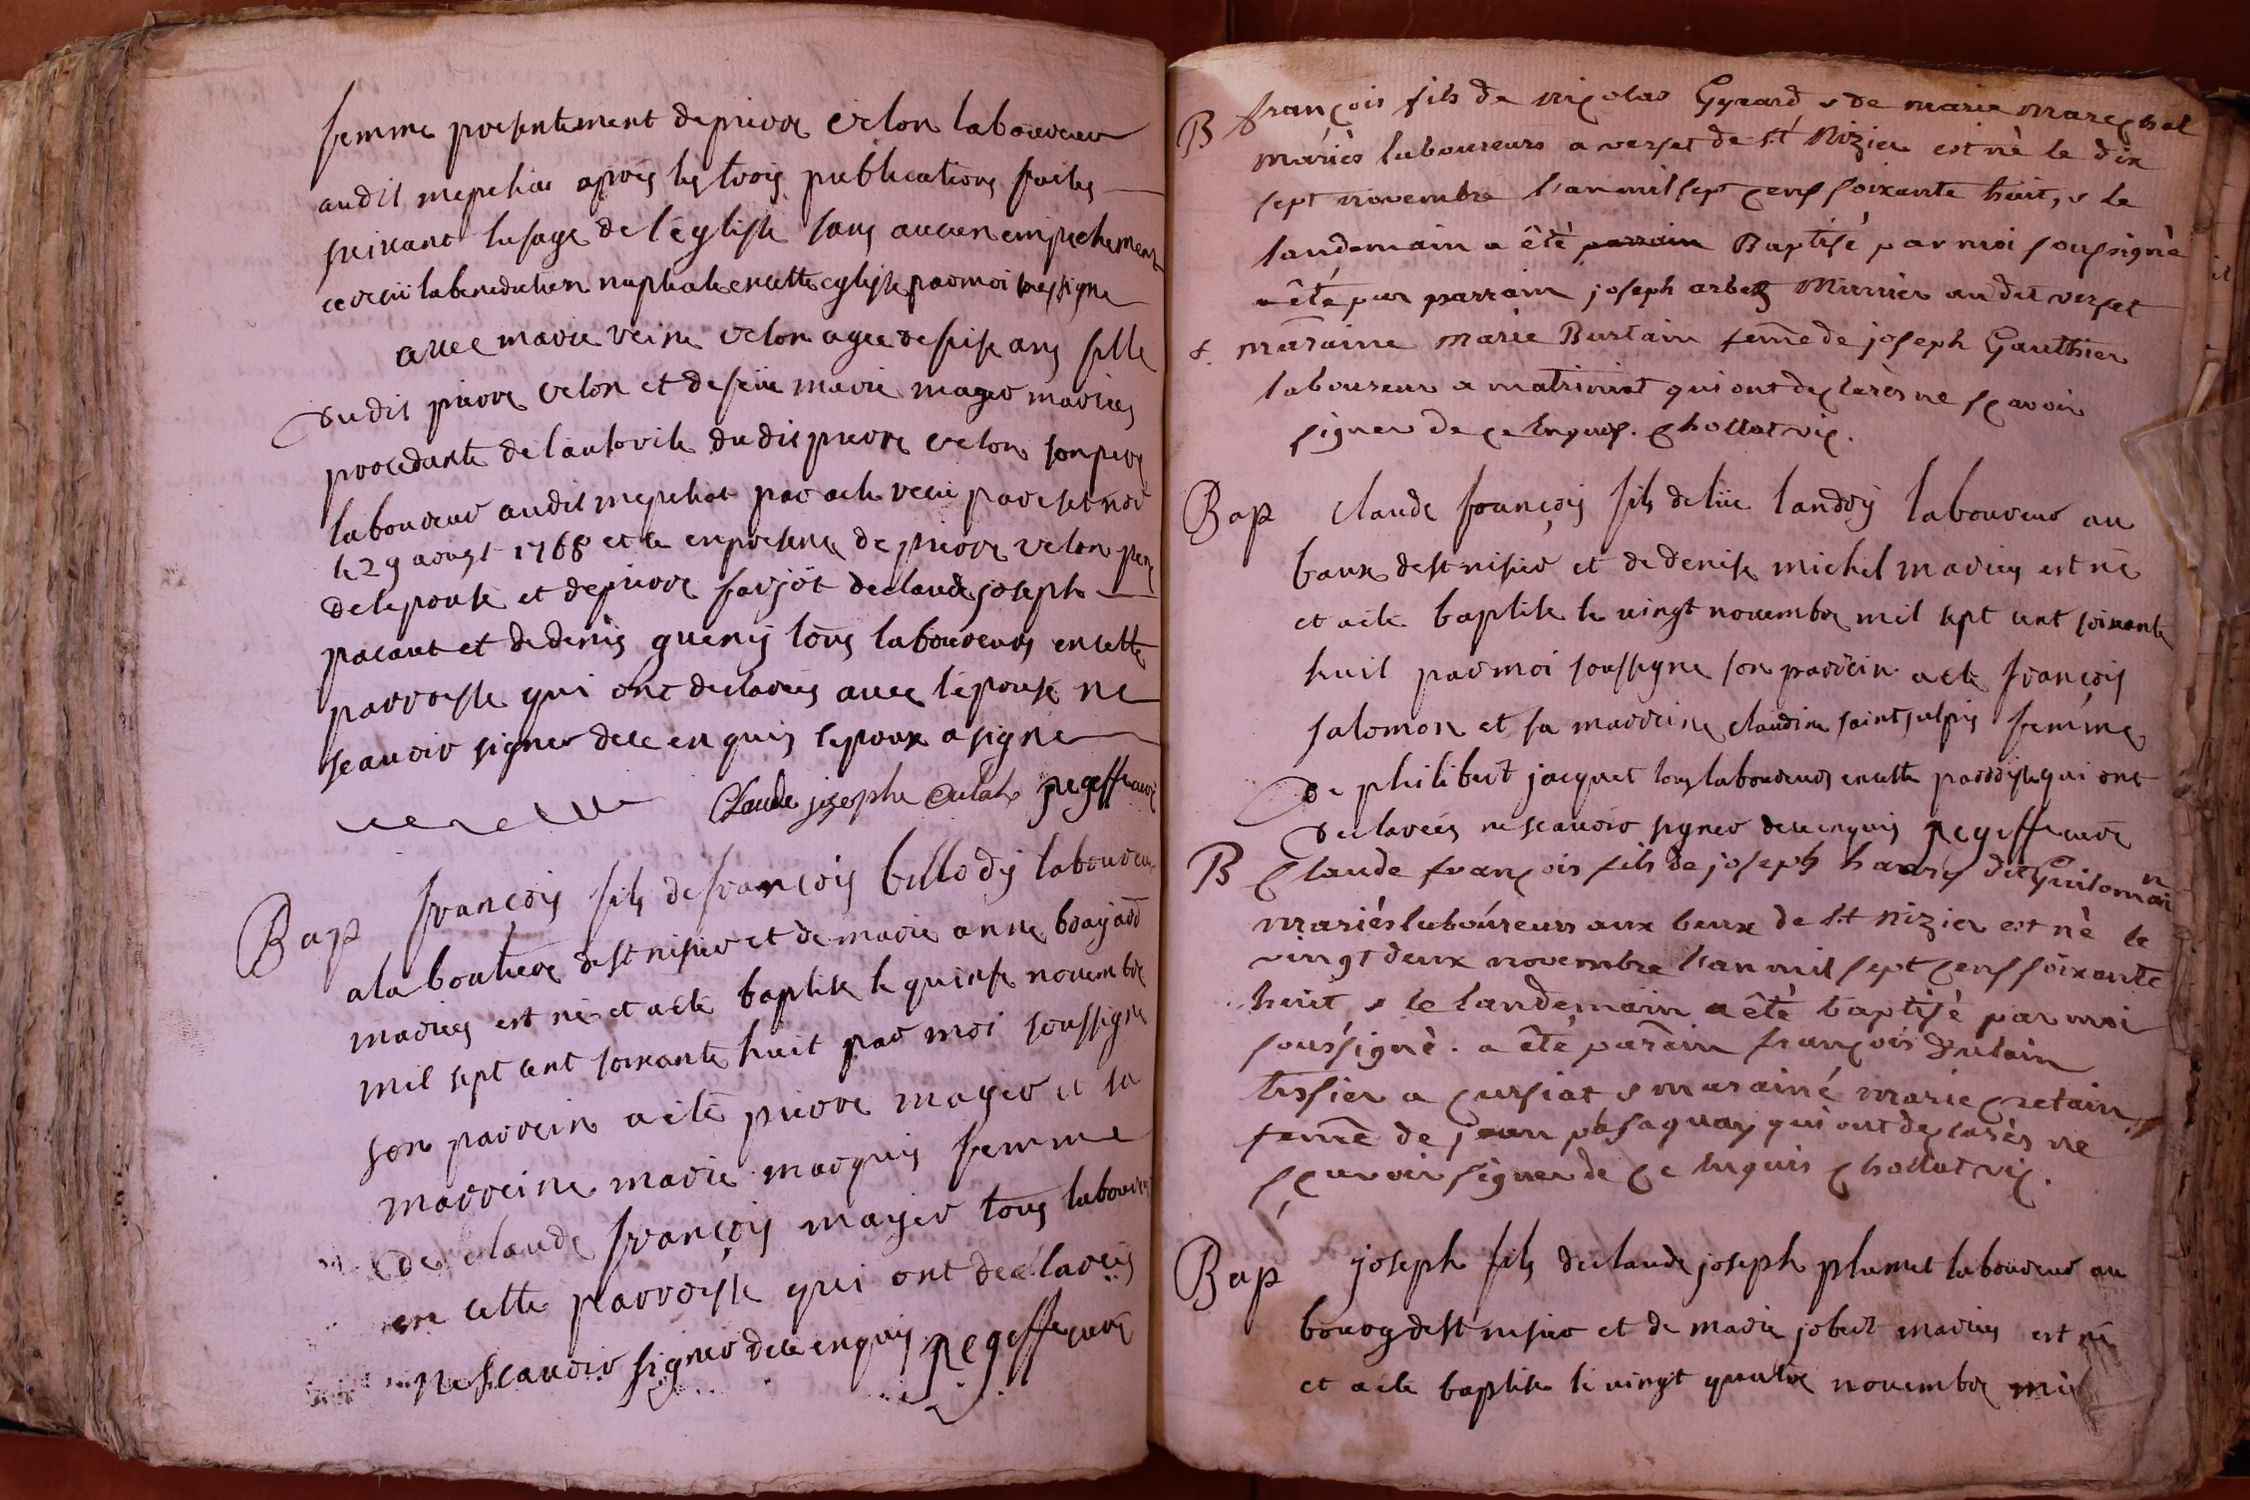 femme presentement de pierre velon laboureur
audit mepeliat après les trois publications faites
suivant lusage de l'église sans aucun empechement
a receu la benediction nuptiale en cette eglise par moi soussigne
avec marie reine velon agee de seise ans fille
dudit pierre velon et de feüe marie mager mariés
procedante de l'autorite dudit pierre velon son pere
laboureur audit mepeliat par acte receu par
le 29 aougt 1768 et ce en presence de pierre velon pere
de lepouse et de pierre farjôt de claude joseph
pacaut et de denis guenis tous laboureurs en cette
parroisse qui ont declarés avec l'epouse ne
scavoir signer de ce enquis lepoux a signé
Claude joseph pegeffe curé
Bap françois fils de françois billodÿ laboureur
a la boutiere de st nisier et de marie anne
mariés est né et a ete baptise le quinse novembre
mil sept cent soixante huit par moi soussigne
son parrein a ete pierre mager et sa
marreine marie marquis femme
de claude françois mayer tous laboureurs
en cette parroisse qui ont declarés
ne scavoir signer de ce enquis pegeffe curé
B françois fils de niçolas Gyrard & de marie mareçhal
máriès laboureurs a verset de s.t Nizier est nè le dix
sept novembre l'an mil sept çens soixante huit, & le
landemain a êtè parrain Baptisé par moi sousignè
a été pour parrain joseph arbez Munier au dit verset
&. maraine marie Burtain femẽ de joseph Gauthier
laboureur a matrimat qui ont deçlarès ne sçavoir
signer de çe Enquis. Çhollat viç.
Bap claude françois fils de luc landrÿ laboureur au
baux de st nisier et de denise michel mariés est né
et a ete baptise le vingt novembre mil sept cent soixante
huit par moi soussigne son parrein a ete françois
salomon et sa marreine claudine saint sulpis femme
de philibert jacquet tous laboureurs en cette parroisse qui ont
declarés ne scavoir signer de ce enquis pegeffe curé
B Çlaude françois fils de joseph dit
mariés laboúreurs aux baux de s.t nizier est nè le
vingt deux novembre l'an mil sept çens soixante
huit & le landemain a êtè baptisè par moi
soussignè. a êtè parain françois
tissier a Çursiat & marainé marie Çretain
femẽ de jean qui ont deçlarès ne
sçavoir signer de Çe Enquis Çhollat viç.
Bap joseph fils de claude joseph plumet laboureur au
bourg de st nisier et de marie jobert mariés est né
et a ete baptise le vingt quatre novembre mil